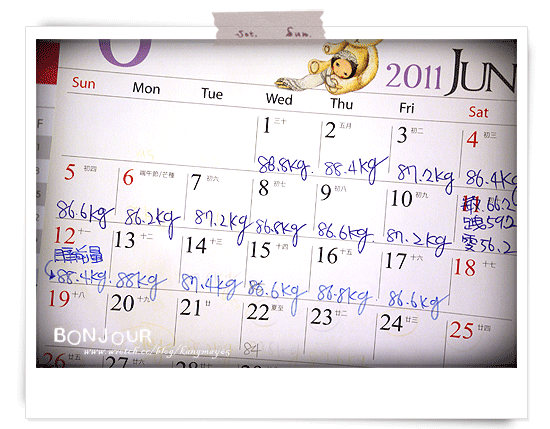 Sat. Sun.
6
2011 JUN
Sun Mon Tue Wed Thu Fri Sat
1 三十 2 五月 3 初二 4 初三
86.8kg 88.4kg 87.2kg 86.4kg
5 初四 6 端午節/芒種 7 初六 8 初七 9 初八 10 初九 11
86.6kg 86.2kg 87.2kg 86.8kg 86.6kg 87.2kg
66.2
59.2
雯56.2
12 十一 13 十二 14 十三 15 十四 16 十五 17 十六 18 十七
88.4kg 88kg 87.4kg 86.6kg 86.8kg 86.6kg
19 十八 20 十九 21 廿 22 夏至 23 廿二 24 廿三 25 廿四
84
26 廿五 27 廿六 28 29 30
BONJOUR
www.wretch.cc/blog/kangmay65